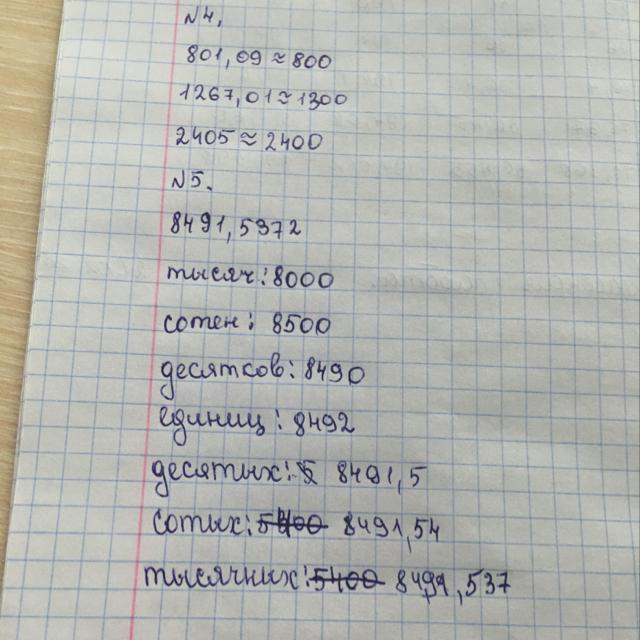 №4.
801,09≈800
1267,01≈1300
2405≈2400
№5.
8491,5372
тысяч: 8000
сотен: 8500
десятков: 8490
единиц: 8492
десятых: 8491,5
сотых: 5400 8491,54
тысячних: 5400 8491,537